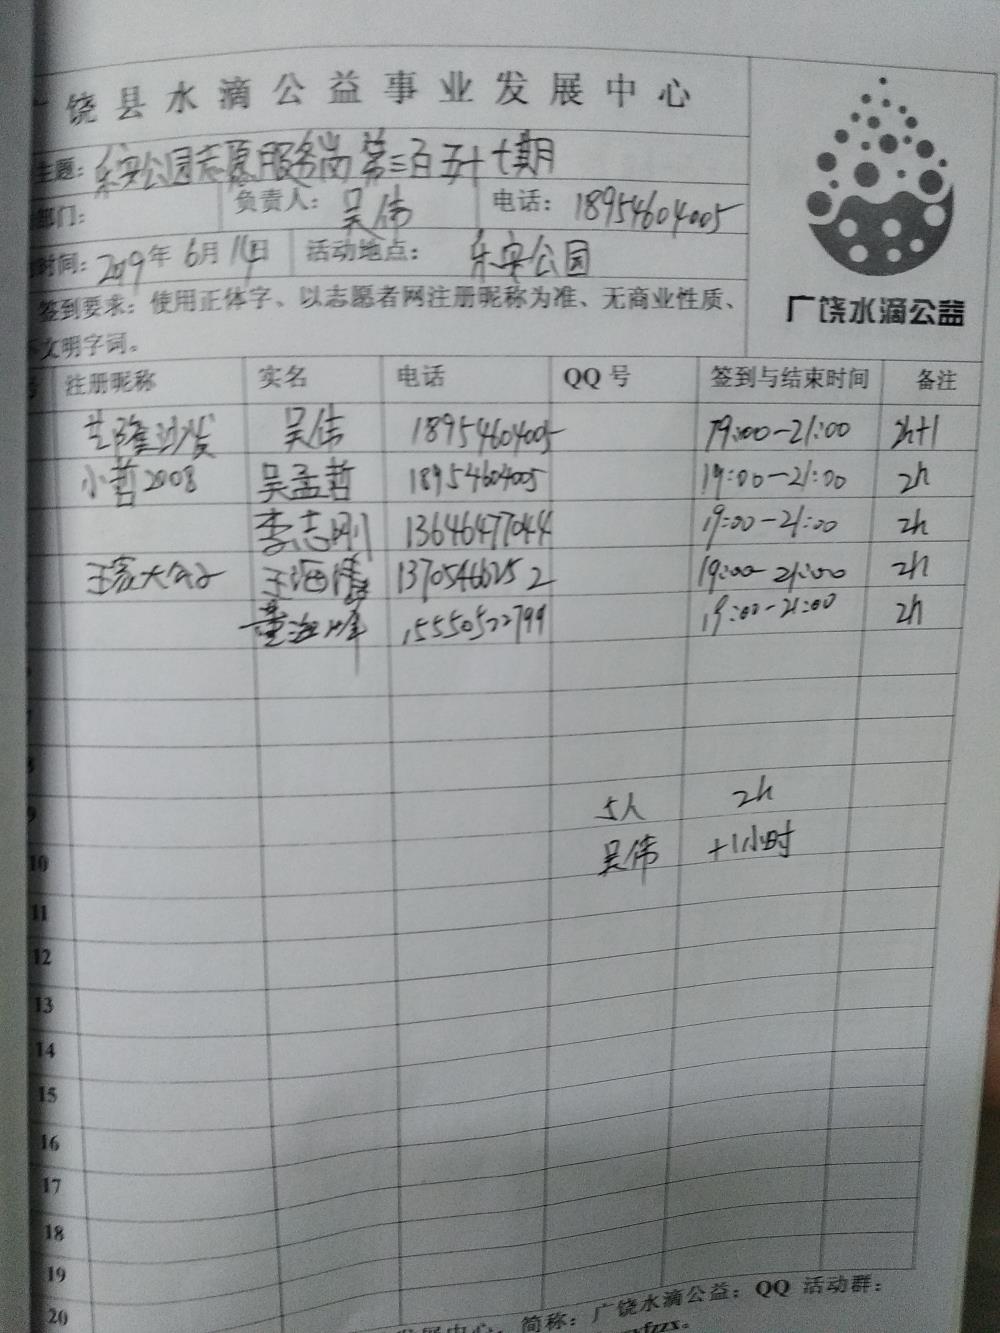 饶县水滴公益事业发展中心
主题：乐安公园志愿服务岗第三百五十七期
部门： 负责人：吴伟 电话：18954604005
时间：2019年6月14日 活动地点：乐安公园
签到要求：使用正体字、以志愿者网注册昵称为准、无商业性质、
文明字词。
广饶水滴公益
注册昵称 实名 电话 QQ号 签到与结束时间 备注
沙发 吴伟 18954604005 19:00-21:00 2h+1
小哲2008 吴孟哲 18954604005 19:00-21:00 2h
李志刚 13646477044 19:00-21:00 2h
王家大公子 王海 13705466252 19:00-21:00 2h
董海峰 15550522799 19:00-21:00 2h
9 5人 2h
10 吴伟 +1小时
11
12
13
14
15
16
17
18
19
20
发展中心，简称：广饶水滴公益；QQ 活动群：